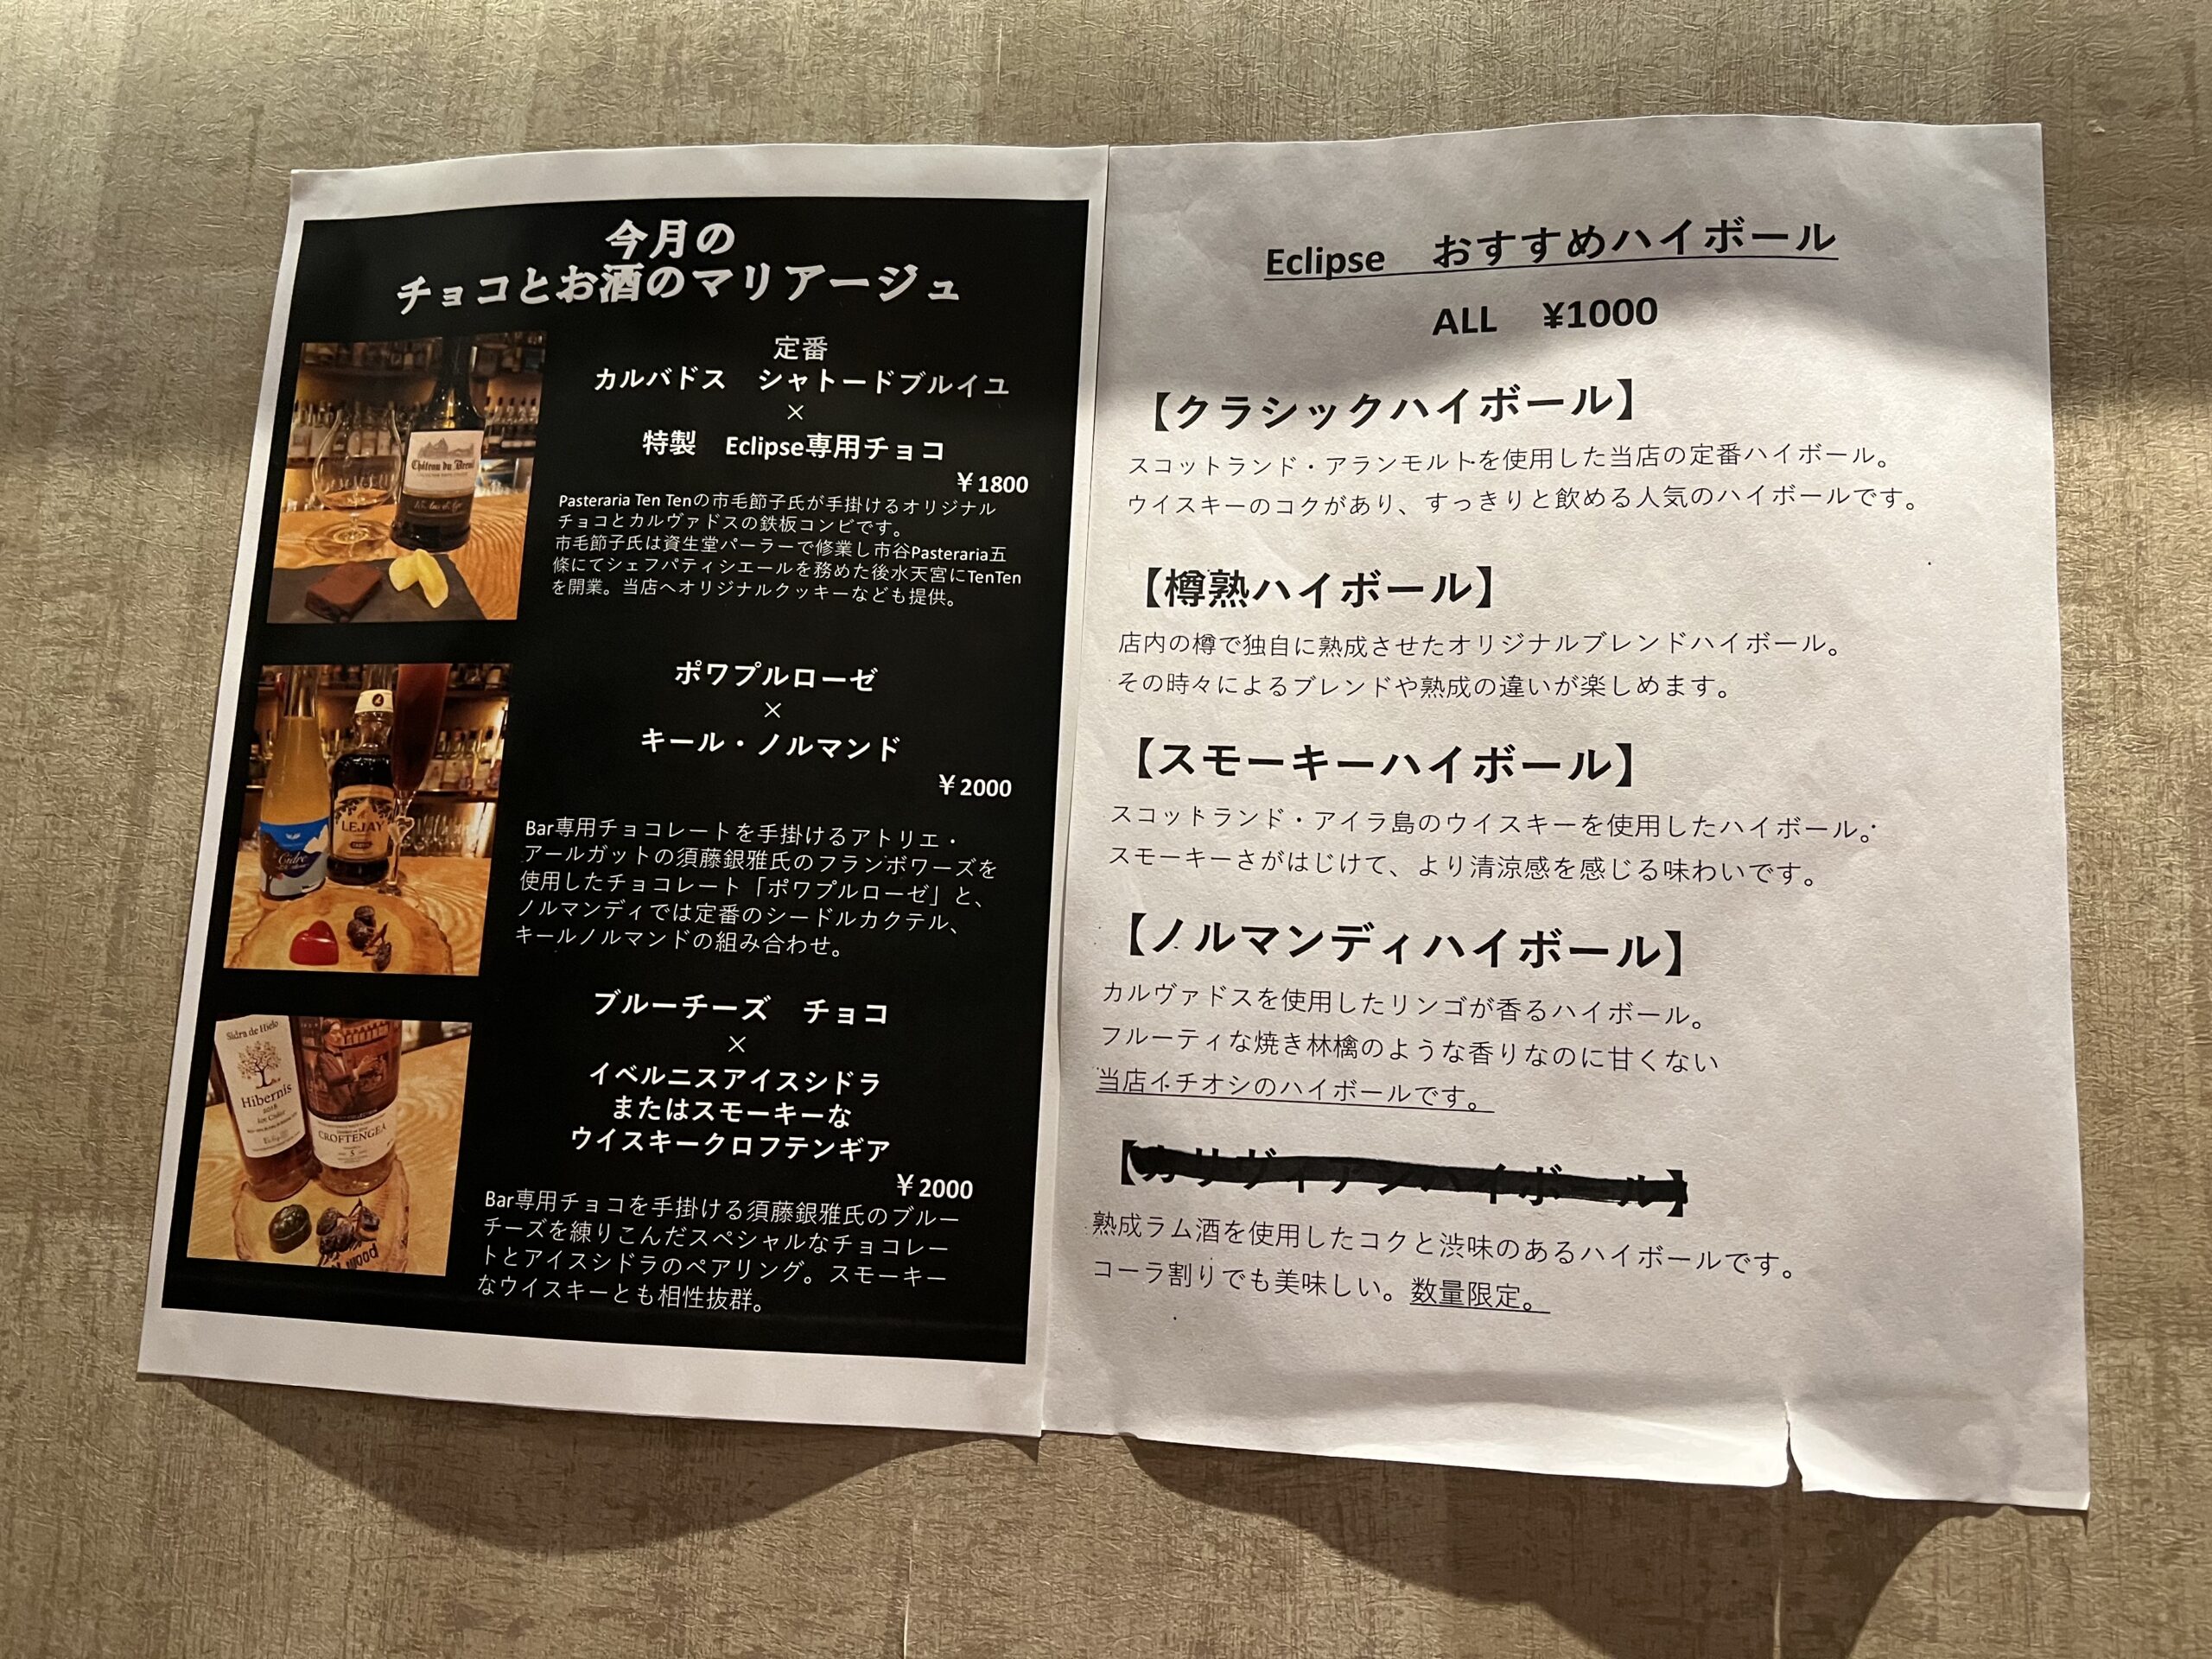 今月の
チョコとお酒のマリアージュ
定番
カルバドス　シャトードブルイユ
×
特製　Eclipse専用チョコ
￥1800
Pasteraria Ten Tenの市毛節子氏が手掛けるオリジナル
チョコとカルヴァドスの鉄板コンビです。
市毛節子氏は資生堂パーラーで修業し市谷Pasteraria五
條にてシェフパティシエールを務めた後水天宮にTenTen
を開業。当店へオリジナルクッキーなども提供。
Château du Breuil
ポワプルローゼ
×
キール・ノルマンド
￥2000
Bar専用チョコレートを手掛けるアトリエ・
アールガットの須藤銀雅氏のフランボワーズを
使用したチョコレート「ポワプルローゼ」と、
ノルマンディでは定番のシードルカクテル、
キールノルマンドの組み合わせ。
Cidre
LEJAY
ブルーチーズ　チョコ
×
イベルニスアイスシドラ
またはスモーキーな
ウイスキークロフテンギア
￥2000
Bar専用チョコを手掛ける須藤銀雅氏のブルー
チーズを練りこんだスペシャルなチョコレー
トとアイスシドラのペアリング。スモーキー
なウイスキーとも相性抜群。
Sidra de Hielo
Hibernis
2018
Ice Cider
CROFTENGEA
5
wood
Eclipse　おすすめハイボール
ALL　¥1000
【クラシックハイボール】
スコットランド・アランモルトを使用した当店の定番ハイボール。
ウイスキーのコクがあり、すっきりと飲める人気のハイボールです。
【樽熟ハイボール】
店内の樽で独自に熟成させたオリジナルブレンドハイボール。
その時々によるブレンドや熟成の違いが楽しめます。
【スモーキーハイボール】
スコットランド・アイラ島のウイスキーを使用したハイボール。
スモーキーさがはじけて、より清涼感を感じる味わいです。
【ノルマンディハイボール】
カルヴァドスを使用したリンゴが香るハイボール。
フルーティな焼き林檎のような香りなのに甘くない
当店イチオシのハイボールです。
【カリヴィアンハイボール】
熟成ラム酒を使用したコクと渋味のあるハイボールです。
コーラ割りでも美味しい。数量限定。